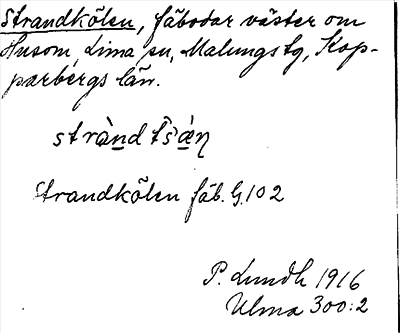 Strandkölen, fäbodar väster om
Husom, Lima sn, Malungs tg, Kop-
parbergs län.
Strandkölen fäb. G. 102
P. Lundh 1916
Ulma 300:2